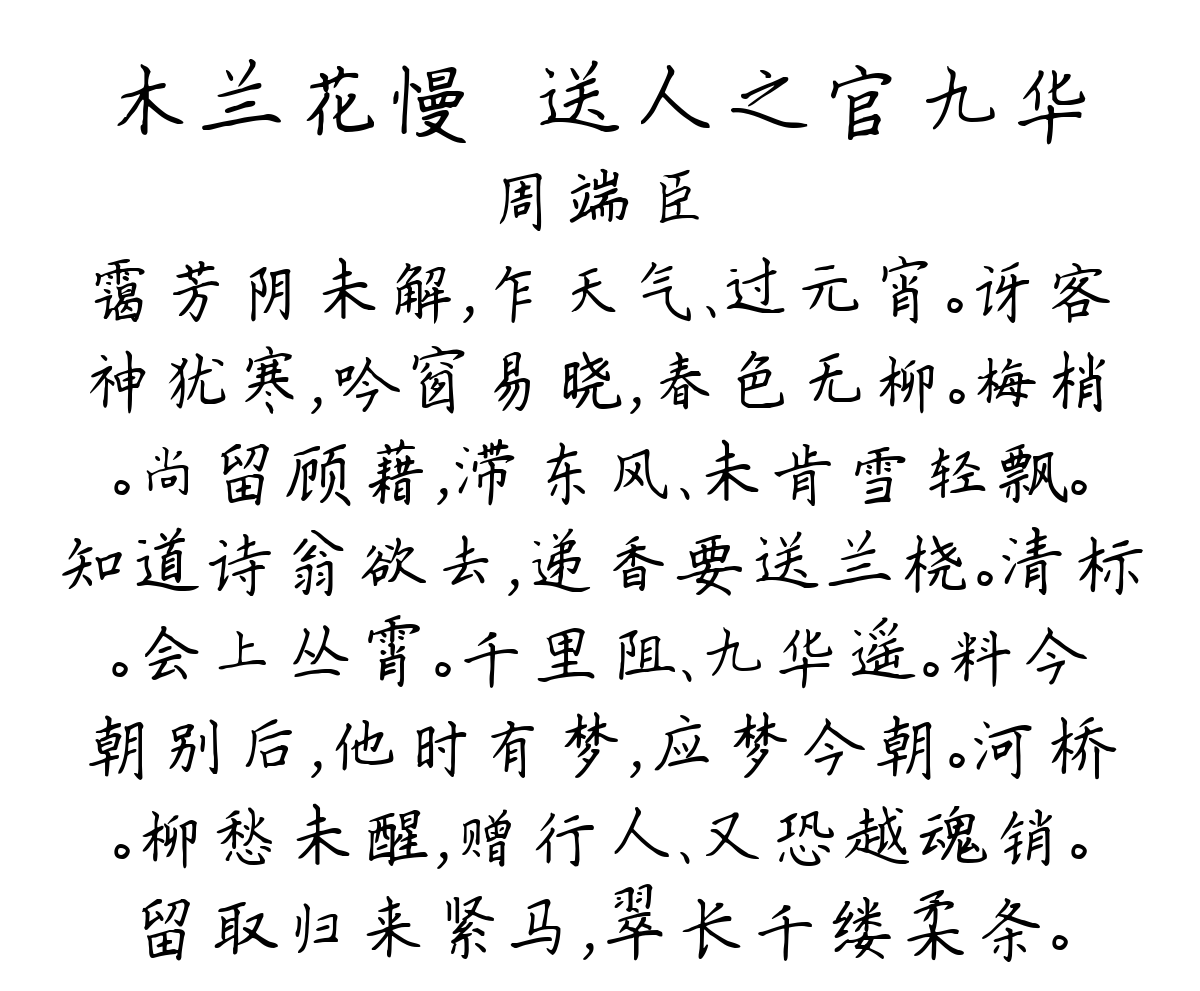 木兰花慢 送人之官九华
周端臣
霭芳阴未解,乍天气、过元宵。讶客
神犹寒,吟窗易晓,春色无柳。梅梢
。尚留顾藉,滞东风、未肯雪轻飘。
知道诗翁欲去,递香要送兰桡。清标
。会上丛霄。千里阻、九华遥。料今
朝别后,他时有梦,应梦今朝。河桥
。柳愁未醒,赠行人、又恐越魂销。
留取归来紧马,翠长千缕柔条。